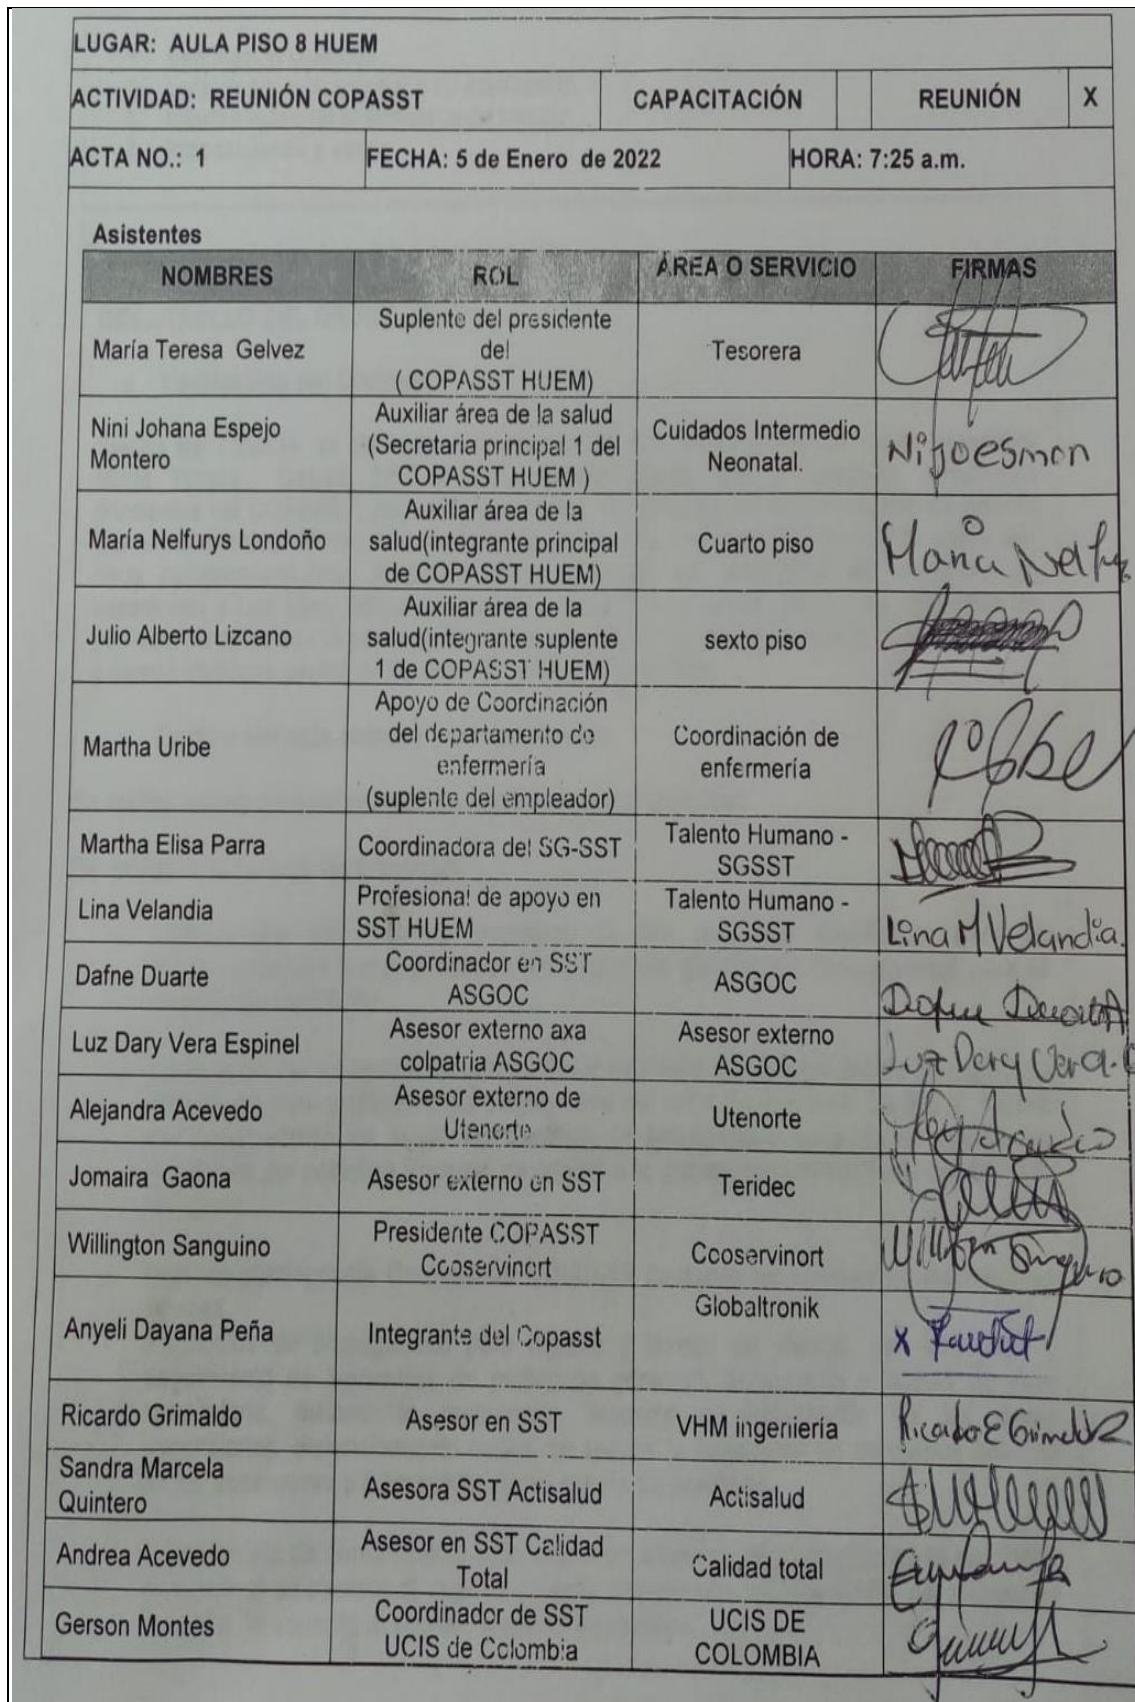 LUGAR: AULA PISO 8 HUEM
ACTIVIDAD: REUNIÓN COPASST CAPACITACIÓN REUNIÓN X
ACTA NO.: 1 FECHA: 5 de Enero de 2022 HORA: 7:25 a.m.
Asistentes
NOMBRES ROL ÁREA O SERVICIO FIRMAS
María Teresa Gelvez
Suplente del presidente
del
( COPASST HUEM)
Tesorera
Nini Johana Espejo
Montero
Auxiliar área de la salud
(Secretaria principal 1 del
COPASST HUEM )
Cuidados Intermedio
Neonatal.
María Nelfurys Londoño
Auxiliar área de la
salud(integrante principal
de COPASST HUEM)
Cuarto piso
Julio Alberto Lizcano
Auxiliar área de la
salud(integrante suplente
1 de COPASST HUEM)
sexto piso
Martha Uribe
Apoyo de Coordinación
del departamento de
enfermería
(suplente del empleador)
Coordinación de
enfermería
Martha Elisa Parra
Coordinadora del SG-SST
Talento Humano -
SGSST
Lina Velandia
Profesional de apoyo en
SST HUEM
Talento Humano -
SGSST
Lina M Velandia.
Dafne Duarte
Coordinador en SST
ASGOC
ASGOC
Luz Dary Vera Espinel
Asesor externo axa
colpatria ASGOC
Asesor externo
ASGOC
Luz Dary Vera.
Alejandra Acevedo
Asesor externo de
Utenorte
Utenorte
Jomaira Gaona
Asesor externo en SST
Teridec
Willington Sanguino
Presidente COPASST
Cooservinort
Cooservinort
Anyeli Dayana Peña
Integrante del Copasst
Globaltronik
X
Ricardo Grimaldo
Asesor en SST
VHM ingeniería
Sandra Marcela
Quintero
Asesora SST Actisalud
Actisalud
Andrea Acevedo
Asesor en SST Calidad
Total
Calidad total
Gerson Montes
Coordinador de SST
UCIS de Colombia
UCIS DE
COLOMBIA